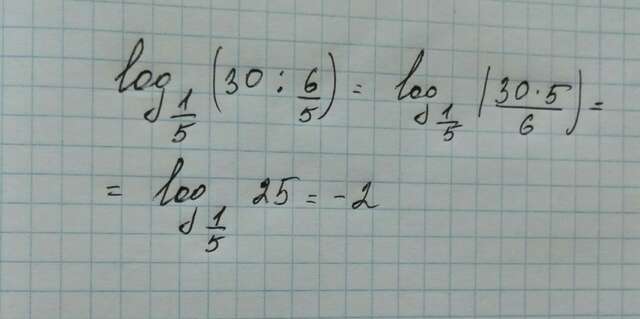 log_{1/5} (30 : 6/5) = log_{1/5} (30·5/6) =
= log_{1/5} 25 = -2